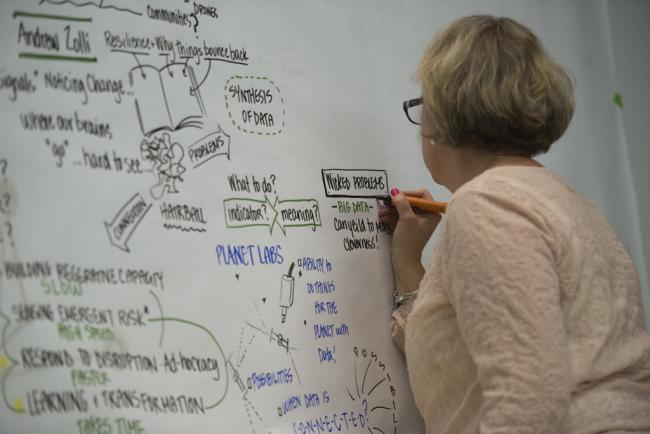 Communities? DRONES
Andrew Zolli
Resilience + Why things bounce back
Signals." Noticing Change...
Where our brains
"go"... hard to see
PROBLEMS
CONNECTION
HAIRBALL
SYNTHESIS
OF DATA
What to do?
indicator? meaning?
WICKED PROBLEMS
- BIG DATA -
Can yield to MASS
CLOWNESS!
PLANET LABS
ABILITY to
DO THINGS
FOR THE
PLANET with
Data!
POSSIBILITIES
WHEN DATA IS
C-O-N-N-E-C-T-E-D?
POSSIBIL
BUILDING REGERATIVE CAPACITY
SLOW
SENSING EMERGENT RISK*
HIGH SPEED
RESPOND TO DISRUPTION Ad-hocracy
FASTER
LEARNING + TRANSFORMATION
TAKES TIME